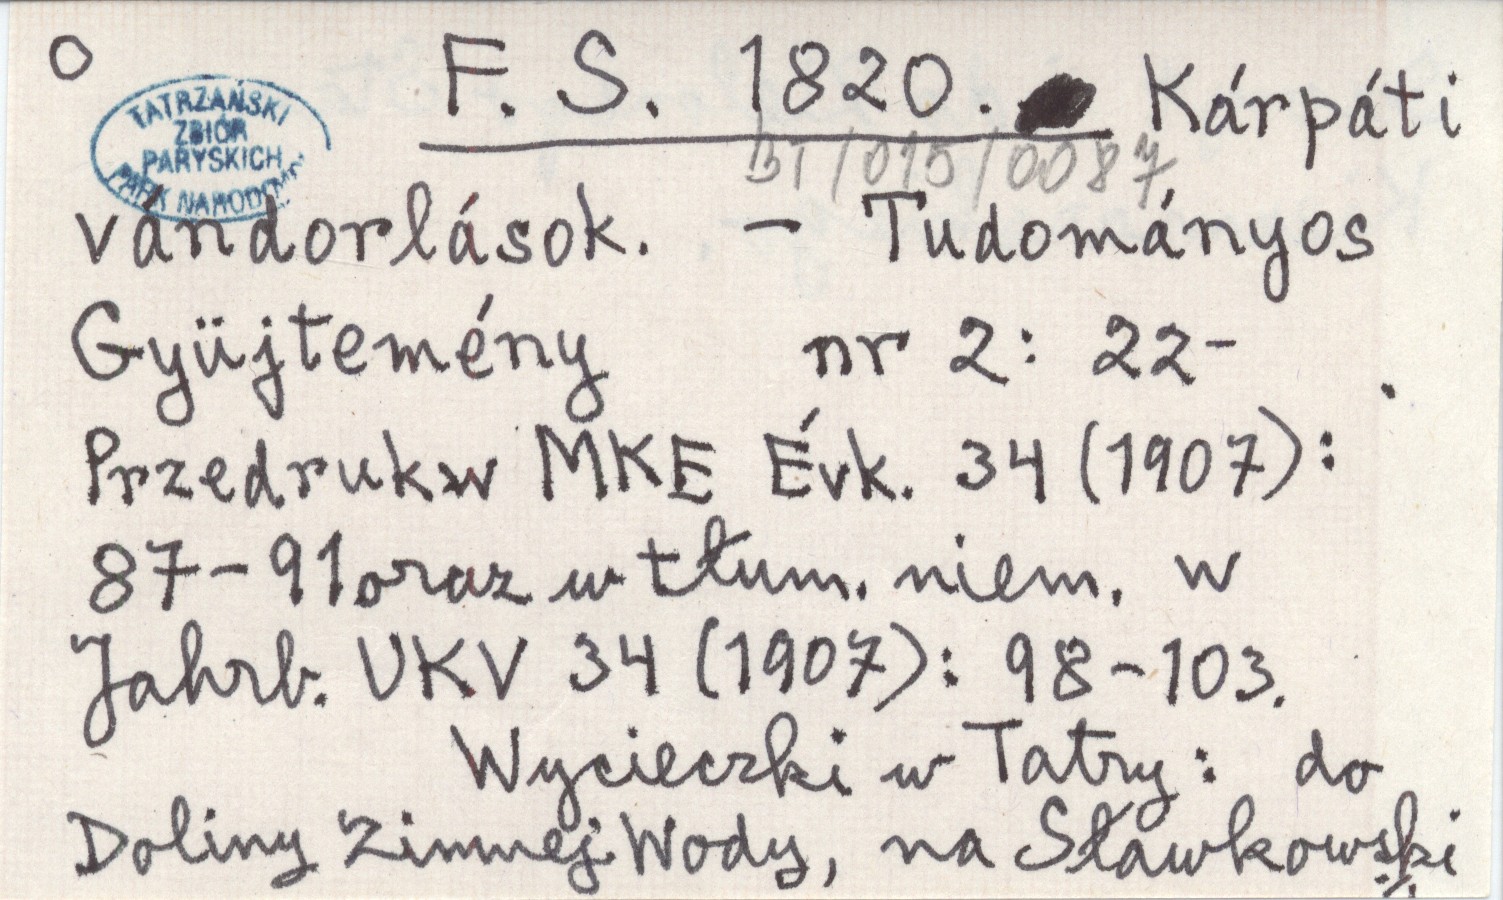 O F. S. 1820. Kárpáti
TATRZAŃSKI
ZBIÓR
PARYSKICH
PARK NARODOWY
BT/015/0087
vándorlások. – Tudományos
Gyüjtemény nr 2: 22-
Przedruk w MKE Évk. 34 (1907):
87-91 oraz w tłum. niem. w
Jahrb. UKV 34 (1907): 98-103.
Wycieczki w Tatry: do
Doliny Zimnej Wody, na Sławkowski